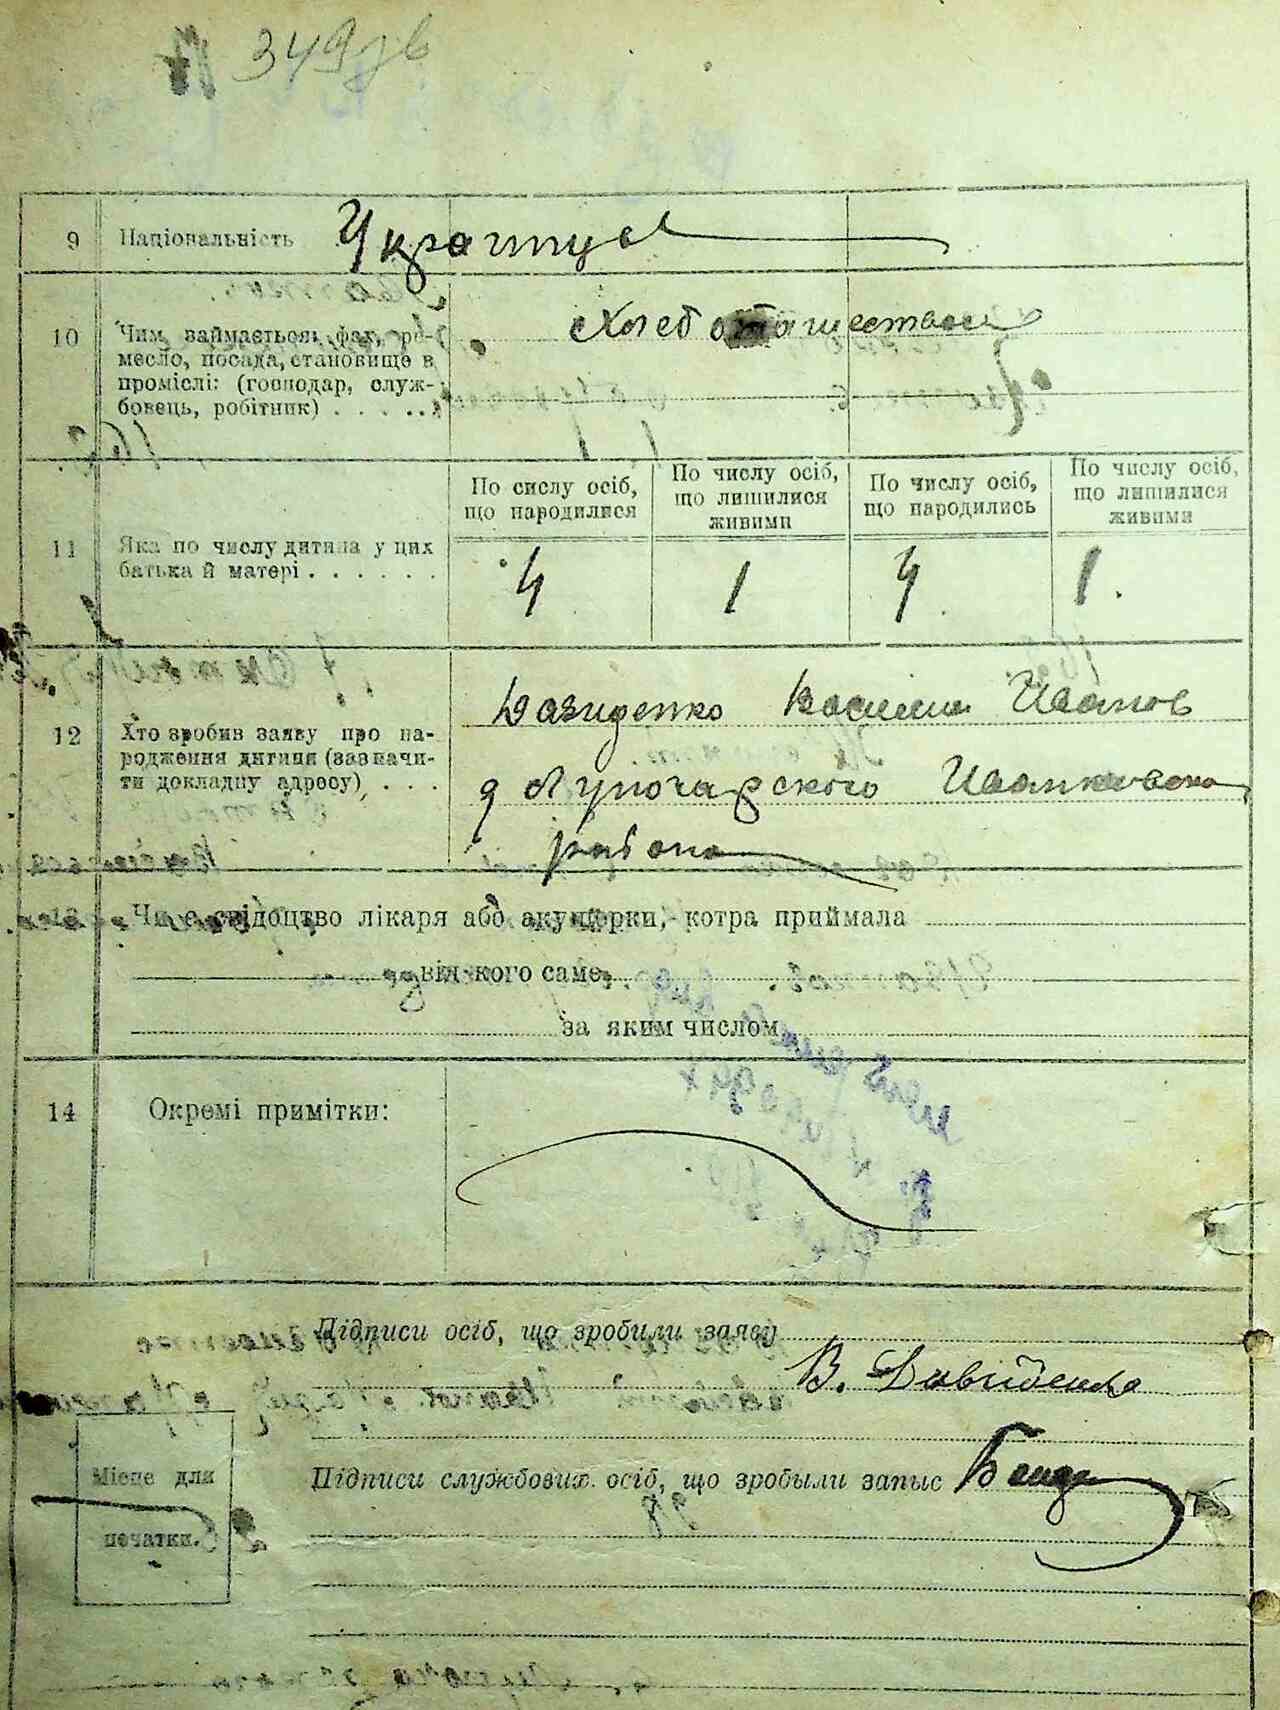 349 зв
9 Національність Украинцы
10 Чим займається: фах, ре-
месло, посада, становище в
проміслі: (господар, служ-
бовець, робітник) . . . . . .
Хлебопашеством
По сислу осіб,
що народилися
По числу осіб,
що лишилися
живими
По числу осіб,
що народились
По числу осіб,
що лишилися
живими
11 Яка по числу дитина у цих
батька й матері . . . . . .
4 1 4 1.
12 Хто зробив заяву про на-
родження дитини (зазначи-
ти докладну адресу) . . . .
Давиденко Василий Иванов
д Лупочарского Иванковского
района
Чи є свідоцтво лікаря або акушерки, котра приймала
від-кого саме
за яким числом
14 Окремі примітки:
Підписи осіб, що зробили заяву
В. Давиденко
Підписи службових осіб, що зробыли запыс
Місце для
печатки.